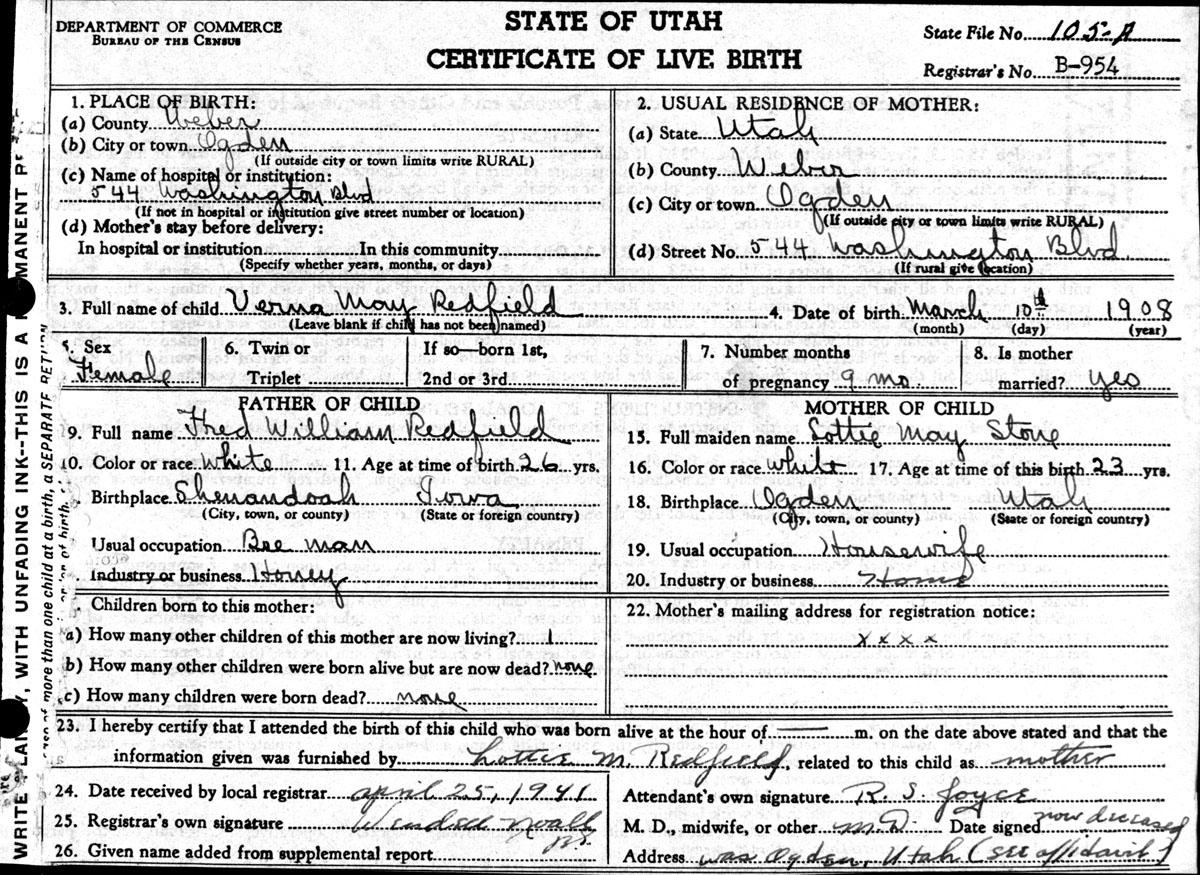 DEPARTMENT OF COMMERCE
BUREAU OF THE CENSUS
STATE OF UTAH
CERTIFICATE OF LIVE BIRTH
State File No. 105-A
Registrar's No. B-954
1. PLACE OF BIRTH:
(a) County Weber
(b) City or town Ogden
(If outside city or town limits write RURAL)
(c) Name of hospital or institution:
544 Washington Blvd
(If not in hospital or institution give street number or location)
(d) Mother's stay before delivery:
In hospital or institution In this community
(Specify whether years, months, or days)
2. USUAL RESIDENCE OF MOTHER:
(a) State Utah
(b) County Weber
(c) City or town Ogden
(If outside city or town limits write RURAL)
(d) Street No. 544 Washington Blvd.
(If rural give location)
3. Full name of child Verna May Redfield
(Leave blank if child has not been named)
4. Date of birth March 10th 1908
(month) (day) (year)
5. Sex
Female
6. Twin or
Triplet
If so—born 1st,
2nd or 3rd
7. Number months
of pregnancy 9 mo
8. Is mother
married? yes
FATHER OF CHILD
9. Full name Fred William Redfield
10. Color or race White 11. Age at time of birth 26 yrs.
Birthplace Shenandoah Iowa
(City, town, or county) (State or foreign country)
Usual occupation Bee man
Industry or business Honey
MOTHER OF CHILD
15. Full maiden name Lottie May Stone
16. Color or race White 17. Age at time of this birth 23 yrs.
18. Birthplace Ogden Utah
(City, town, or county) (State or foreign country)
19. Usual occupation Housewife
20. Industry or business Home
Children born to this mother:
(a) How many other children of this mother are now living? 1
(b) How many other children were born alive but are now dead? none
(c) How many children were born dead? none
22. Mother's mailing address for registration notice:
xxxx
23. I hereby certify that I attended the birth of this child who was born alive at the hour of —— m. on the date above stated and that the
information given was furnished by Lottie M. Redfield, related to this child as mother
24. Date received by local registrar april 25, 1941
25. Registrar's own signature Wendell
26. Given name added from supplemental report
Attendant's own signature R. S. Joyce
M. D., midwife, or other M.D. Date signed now deceased
Address was Ogden, Utah (see affidavit)
WITH UNFADING INK—THIS IS A
more than one child at a birth, a SEPARATE RETURN